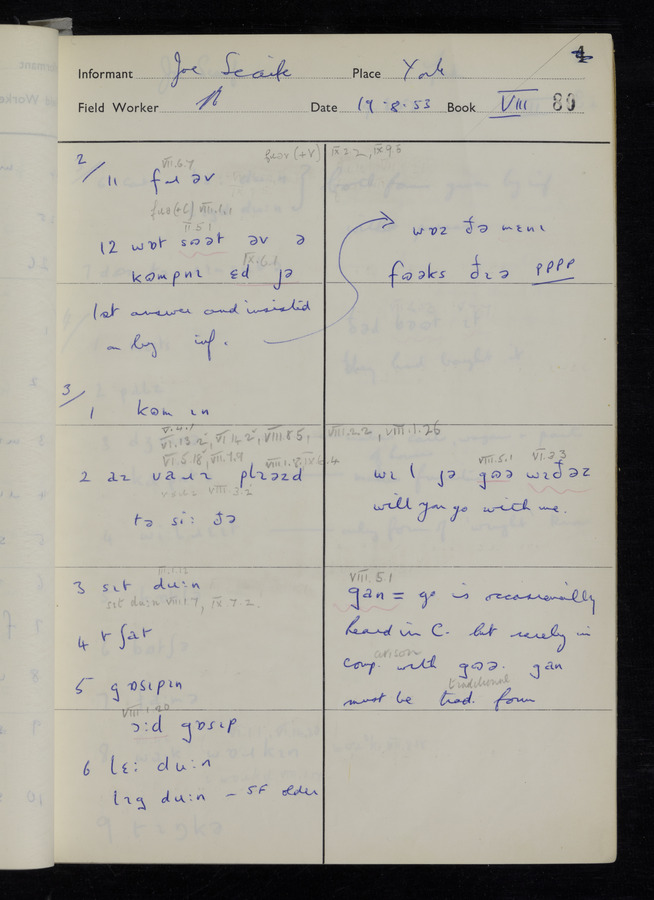 4
Informant Joe Scaife Place York
Field Worker N Date 19·8·53 Book VIII 80
2/ VII.6.7 fɹɒv (+V) IX.2.2, IX.9.6
11 əv
VIII.1.1
II.5.1
12 wɒt sɔət əv ə
IX.6.1
kʊmpnɪ ɛd jə
1st answer and insisted
on by inf.
wɒz ðə mɛnɪ
fɔəks ðɪə pppp
3/
1 kʊm ɪn
V.4.1
VI.13.2, VI.14.2, VIII.8.5, VIII.2.2, VIII.1.25
VI.5.18, VII.7.9 VIII.1.8, IX.6.4
2 plɪəzd
VIII.3.2
tə si: ðə
VIII.5.1 VI.3.3
wɪl jə gɔə wɪðəz
will you go with me.
III.1.12
3 sɪt du:n
sɪt du:n VIII.1.7, IX.7.2.
4 t ʃat
5 gɒsɪpɪn
VIII.1.20
ɔ:d gɒsɪp
6 lɛ: du:n
lɪg du:n – SF older
VIII.5.1
gan = go is occasionally
heard in C. but rarely in
comparison with gɔə. gan
traditional
must be trad. form